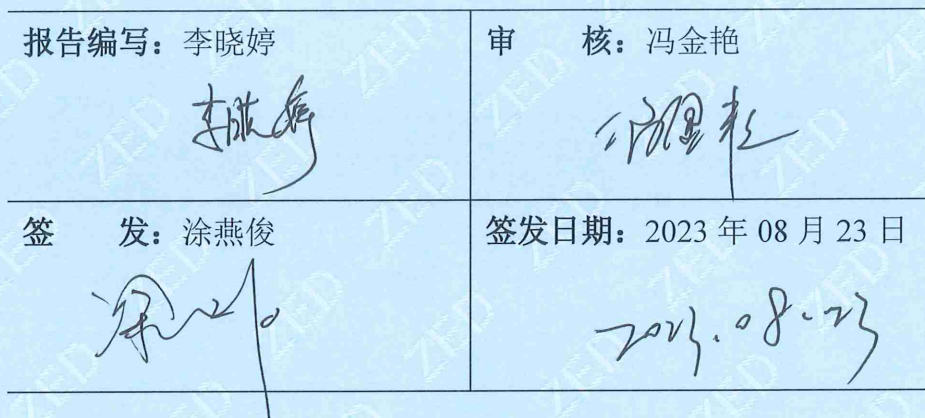 报告编写：李晓婷
审　　核：冯金艳
李晓婷
签　　发：涂燕俊
签发日期：2023 年 08 月 23 日
2023.08.23
ZED